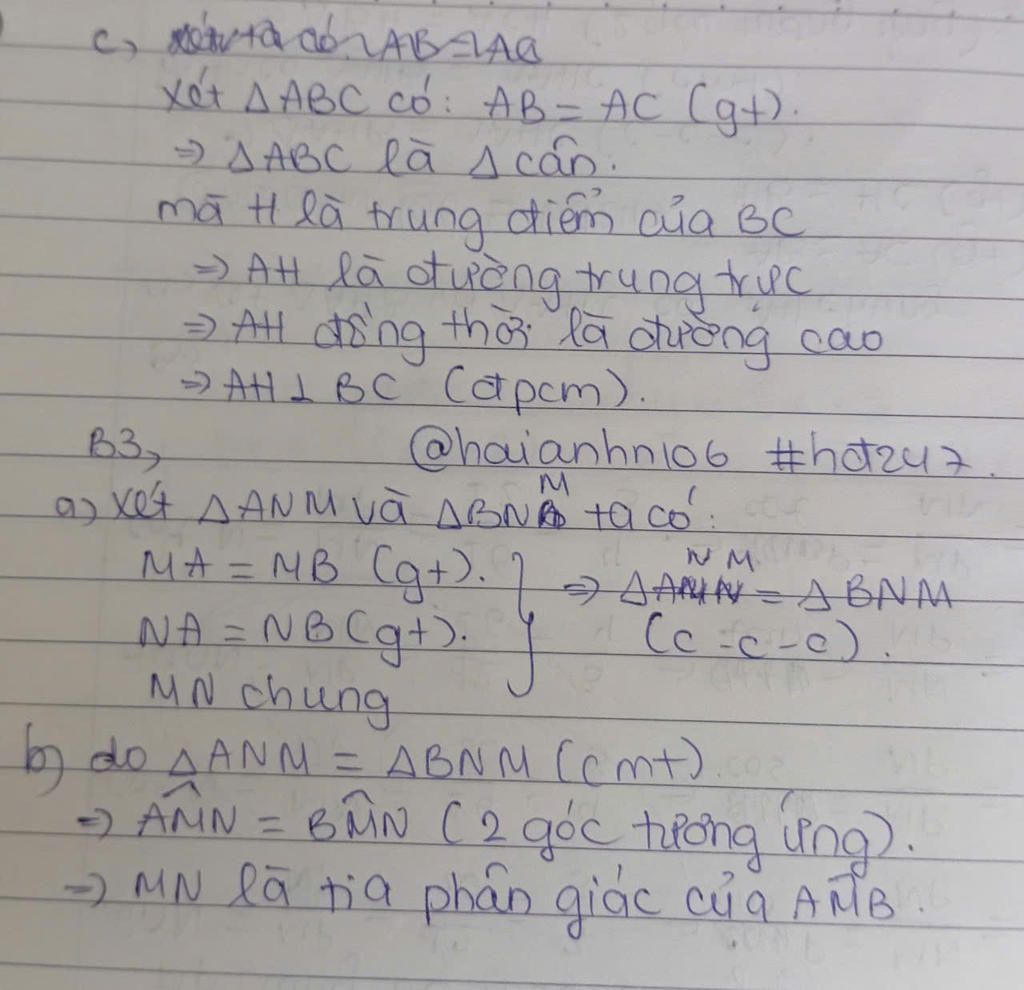 c, ta có AB = AC
xét ΔABC có: AB = AC (gt).
⇒ ΔABC là Δ cân.
mà H là trung điểm của BC
⇒ AH là đường trung trực
⇒ AH đồng thời là đường cao
⇒ AH ⊥ BC (đpcm).
B3, @haianhn106 #hđ247.
a) xét ΔANM và ΔBNM ta có:
MA = MB (gt). } ⇒ ΔANM = ΔBNM
NA = NB (gt). (c-c-c).
MN chung
b) do ΔANM = ΔBNM (cmt)
⇒ AM̂N = BM̂N (2 góc tương ứng).
⇒ MN là tia phân giác của AM̂B.